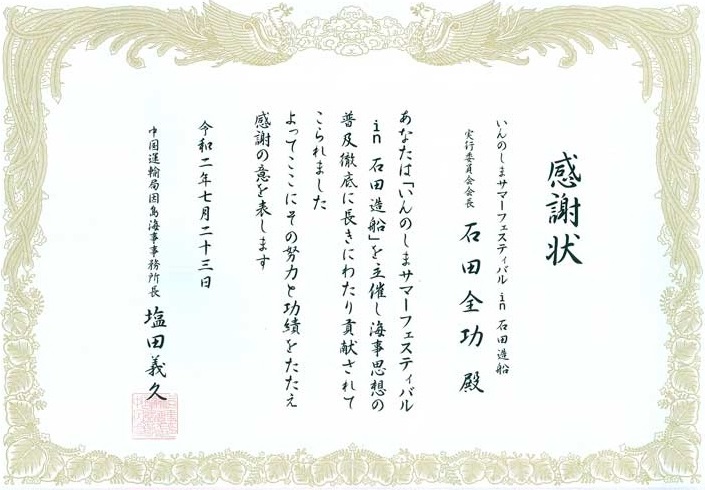 感謝状
いんのしまサマーフェスティバル in 石田造船
実行委員会会長
石田全功 殿
あなたは「いんのしまサマーフェスティバル
in 石田造船」を主催し海事思想の
普及徹底に長きにわたり貢献されて
こられました
よってここにその努力と功績をたたえ
感謝の意を表します
令和二年七月二十三日
中国運輸局因島海事事務所長
塩田義久